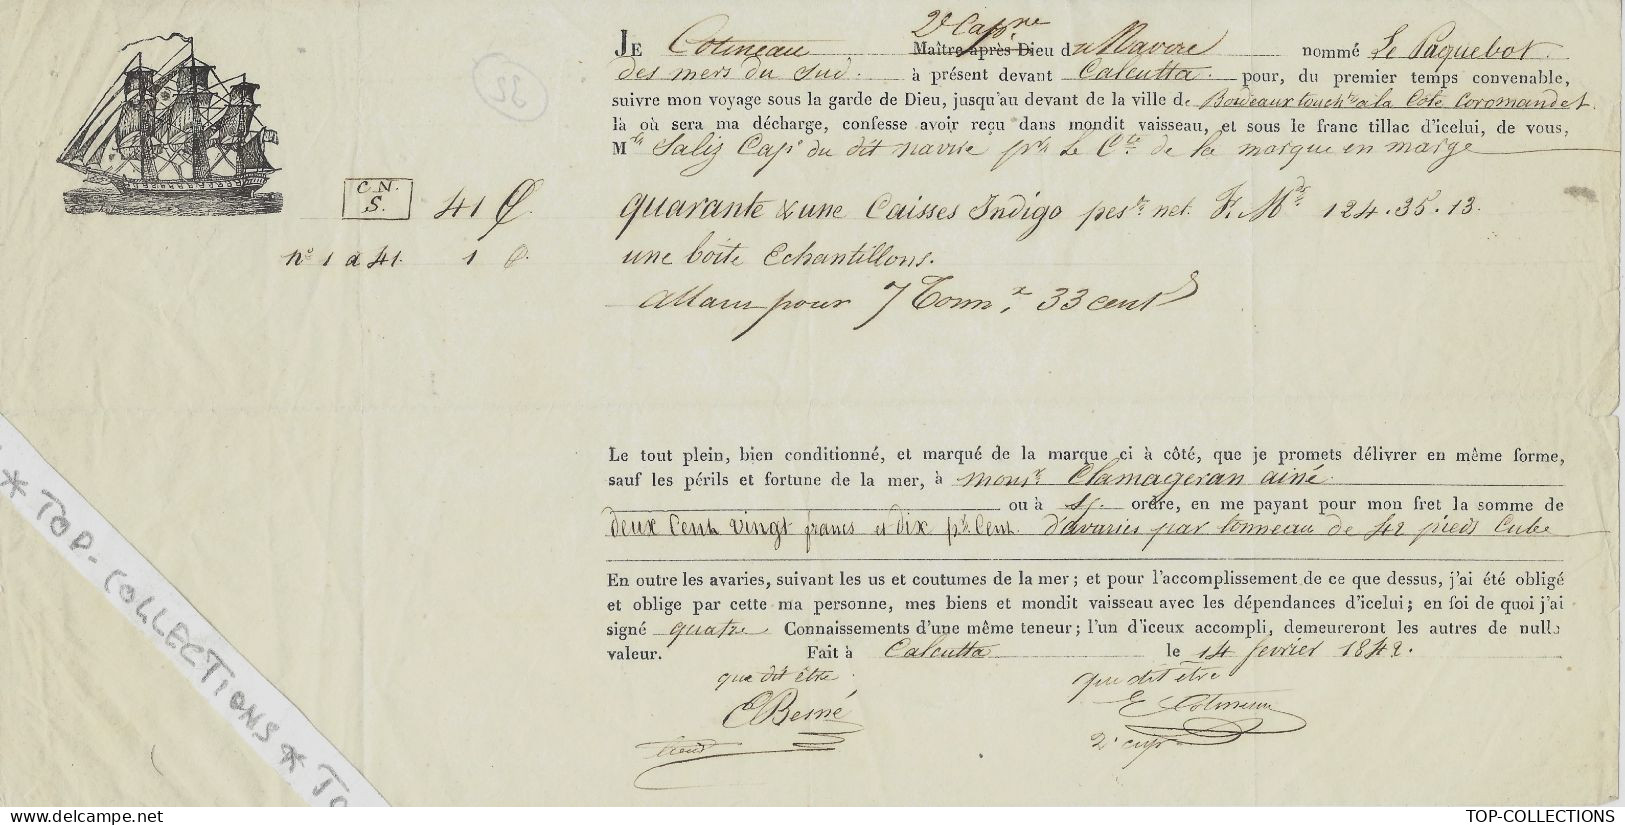 2e Capne
JE Cotineau Maître après Dieu du Navire nommé Le Paquebot
des mers du Sud. à présent devant Calcutta. pour, du premier temps convenable,
suivre mon voyage sous la garde de Dieu, jusqu'au devant de la ville de Bordeaux toucht à la Côte Coromandel.
là où sera ma décharge, confesse avoir reçu dans mondit vaisseau, et sous le franc tillac d'icelui, de vous,
M Saliz Cape du dit navire pr. Le Cte de la marque en marge
C.N.
S. 41 C. quarante & une Caisses Indigo pest net. F. Mds 124.35.13.
no 1 à 41. 1 C. une boîte Echantillons.
allant pour 7 Tonnx 33 cents
Le tout plein, bien conditionné, et marqué de la marque ci à côté, que je promets délivrer en même forme,
sauf les périls et fortune de la mer, à monsr. Clamageran ainé.
ou à S/. ordre, en me payant pour mon fret la somme de
deux Cent vingt francs et dix pr. Cent. d'avaries par tonneau de 42 pieds Cube
En outre les avaries, suivant les us et coutumes de la mer; et pour l'accomplissement de ce que dessus, j'ai été obligé
et oblige par cette ma personne, mes biens et mondit vaisseau avec les dépendances d'icelui; en foi de quoi j'ai
signé quatre Connaissements d'une même teneur; l'un d'iceux accompli, demeureront les autres de nulle
valeur. Fait à Calcutta le 14 février 1842.
que dit être que dit être
Besné E Cotineau
2e cap
* TOP-COLLECTIONS * TO
TOP-COLLECTIONS